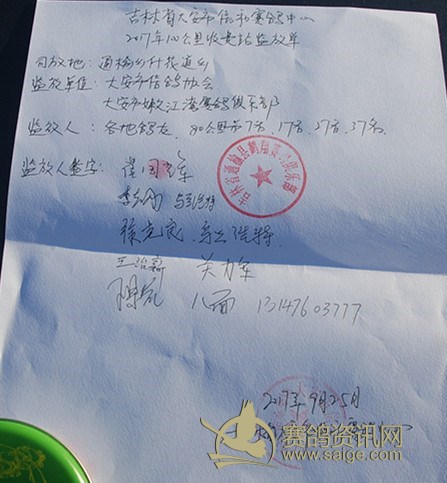 吉林省大安市信和赛鸽中心
2017年100公里收费站监放单
司放地: 通榆乡什花道乡
监放单位: 大安市信鸽协会
大安市嫩江湾赛鸽俱乐部
监放人: 各地鸽友, 80公里前7名, 17名, 27名, 37名.
监放人签字:
吉林省通榆县鹤翔赛鸽俱乐部
乌兰浩特
徐克良 乌兰浩特
关力军
八面 13147603777
2017年9月25日
赛鸽资讯网
www.saige.com